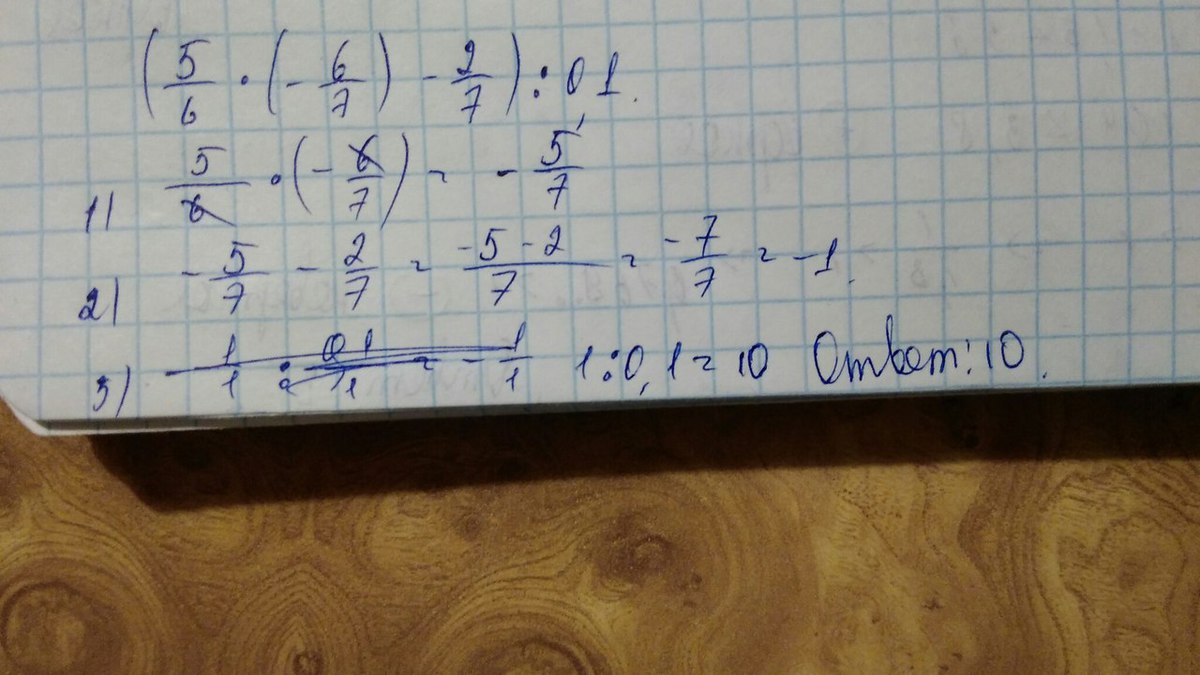 (5/6 · (-6/7) - 2/7) : 0 1.
1) 5/6 · (-6/7) = -5/7
2) -5/7 - 2/7 = -5-2/7 = -7/7 = -1.
3) 1/1 : 01/1 = -1/1 1:0,1=10 Ответ: 10.